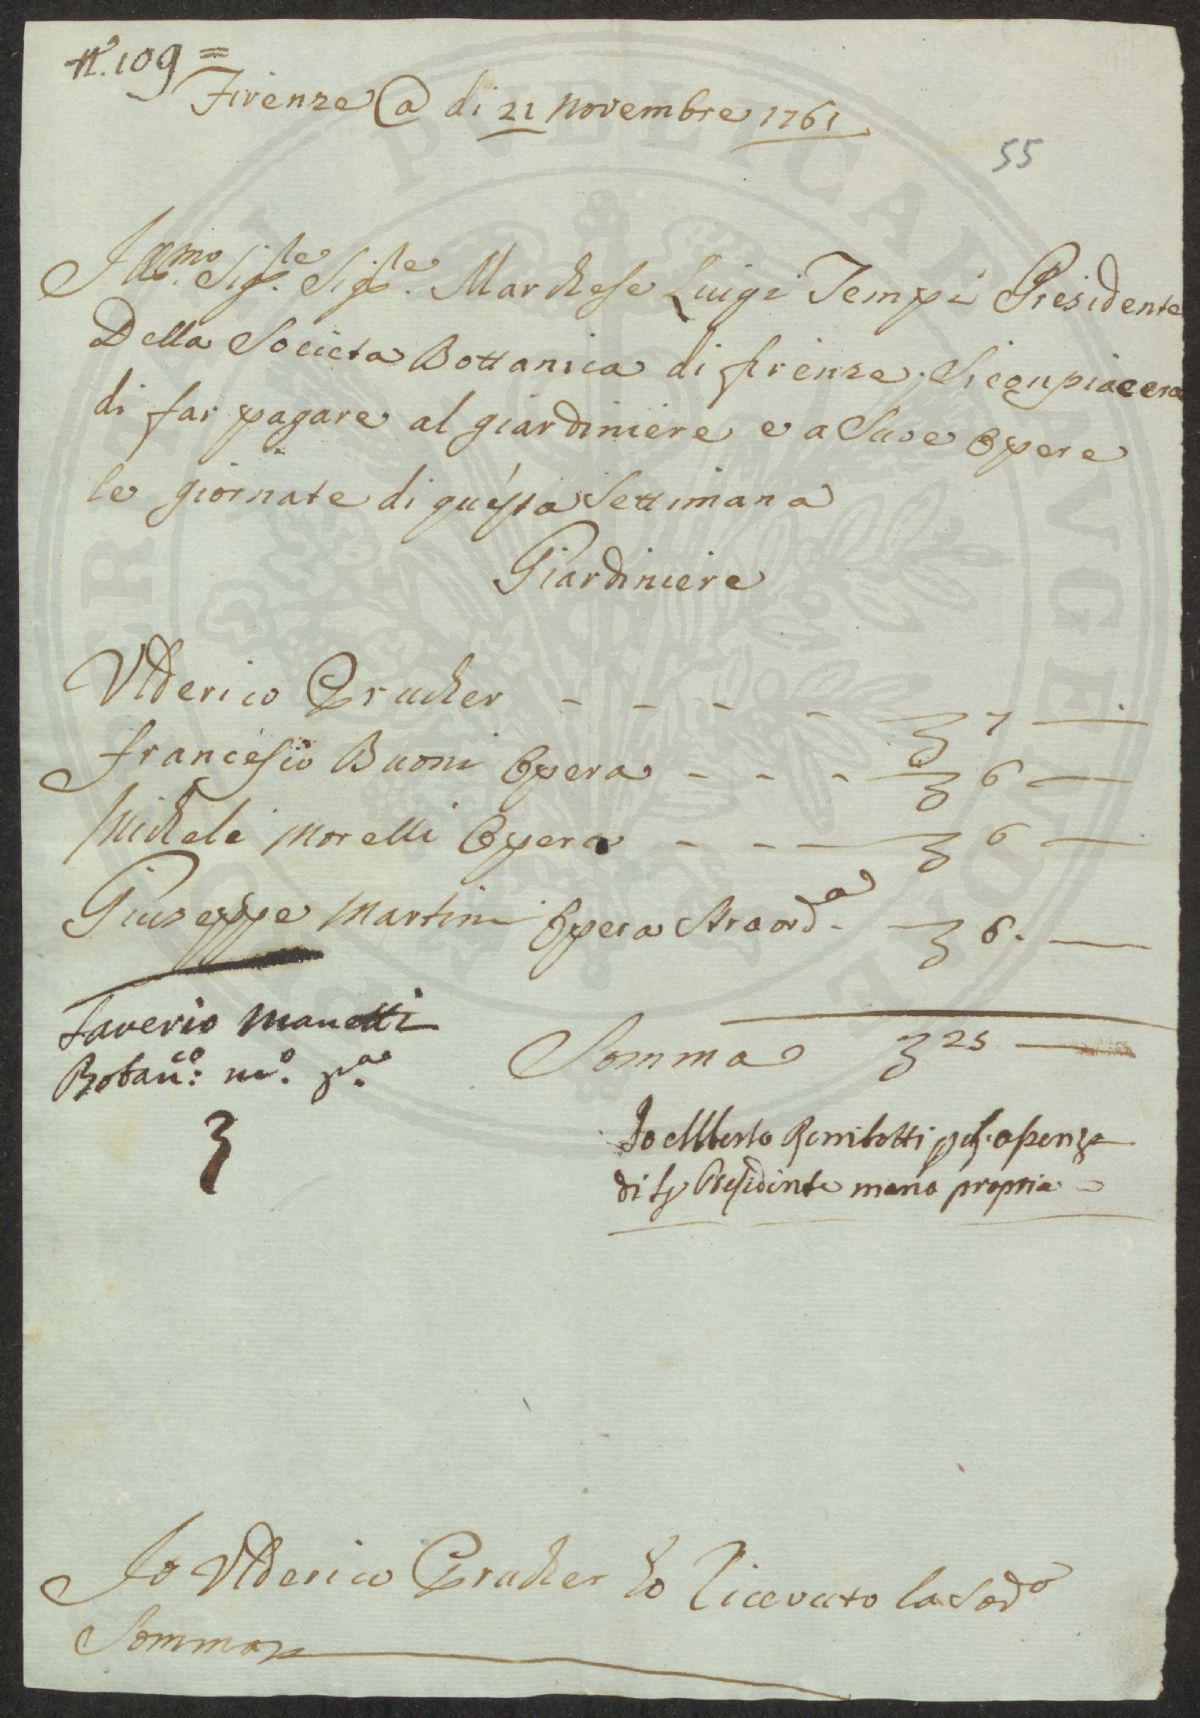 N.o 109 =
Firenze @ di 21 Novembre 1761
55
Ill.mo Sig.re Sig.re Marchese Luigi Tempi Presidente
Della Societa Bottanica di firenze, Si conpiacera
di far pagare al giardiniere e a Sue Opere
le giornate di questa Settimana
Giardiniere
Vlderico Prucker - - - - 7 —
Francesco Buoni Opera - - - 6 —
Michele Morelli Opera - - — 6 —
Giuseppe Martini Opera Straord.a 6. —
Saverio Manetti
Botan.co m.o p.a
Somma 25 —
Io Alberto Rimbotti per asenza
di Sr Presidente mano propria
Io Vlderico Prucker ho Ricevuto la Sod.a
Somma